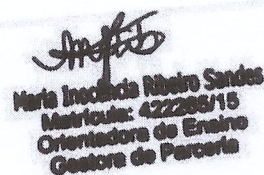 Maria Inocência Ribeiro Sandes
Matrícula: 422265/15
Orientadora de Ensino
Gestora de Parceria